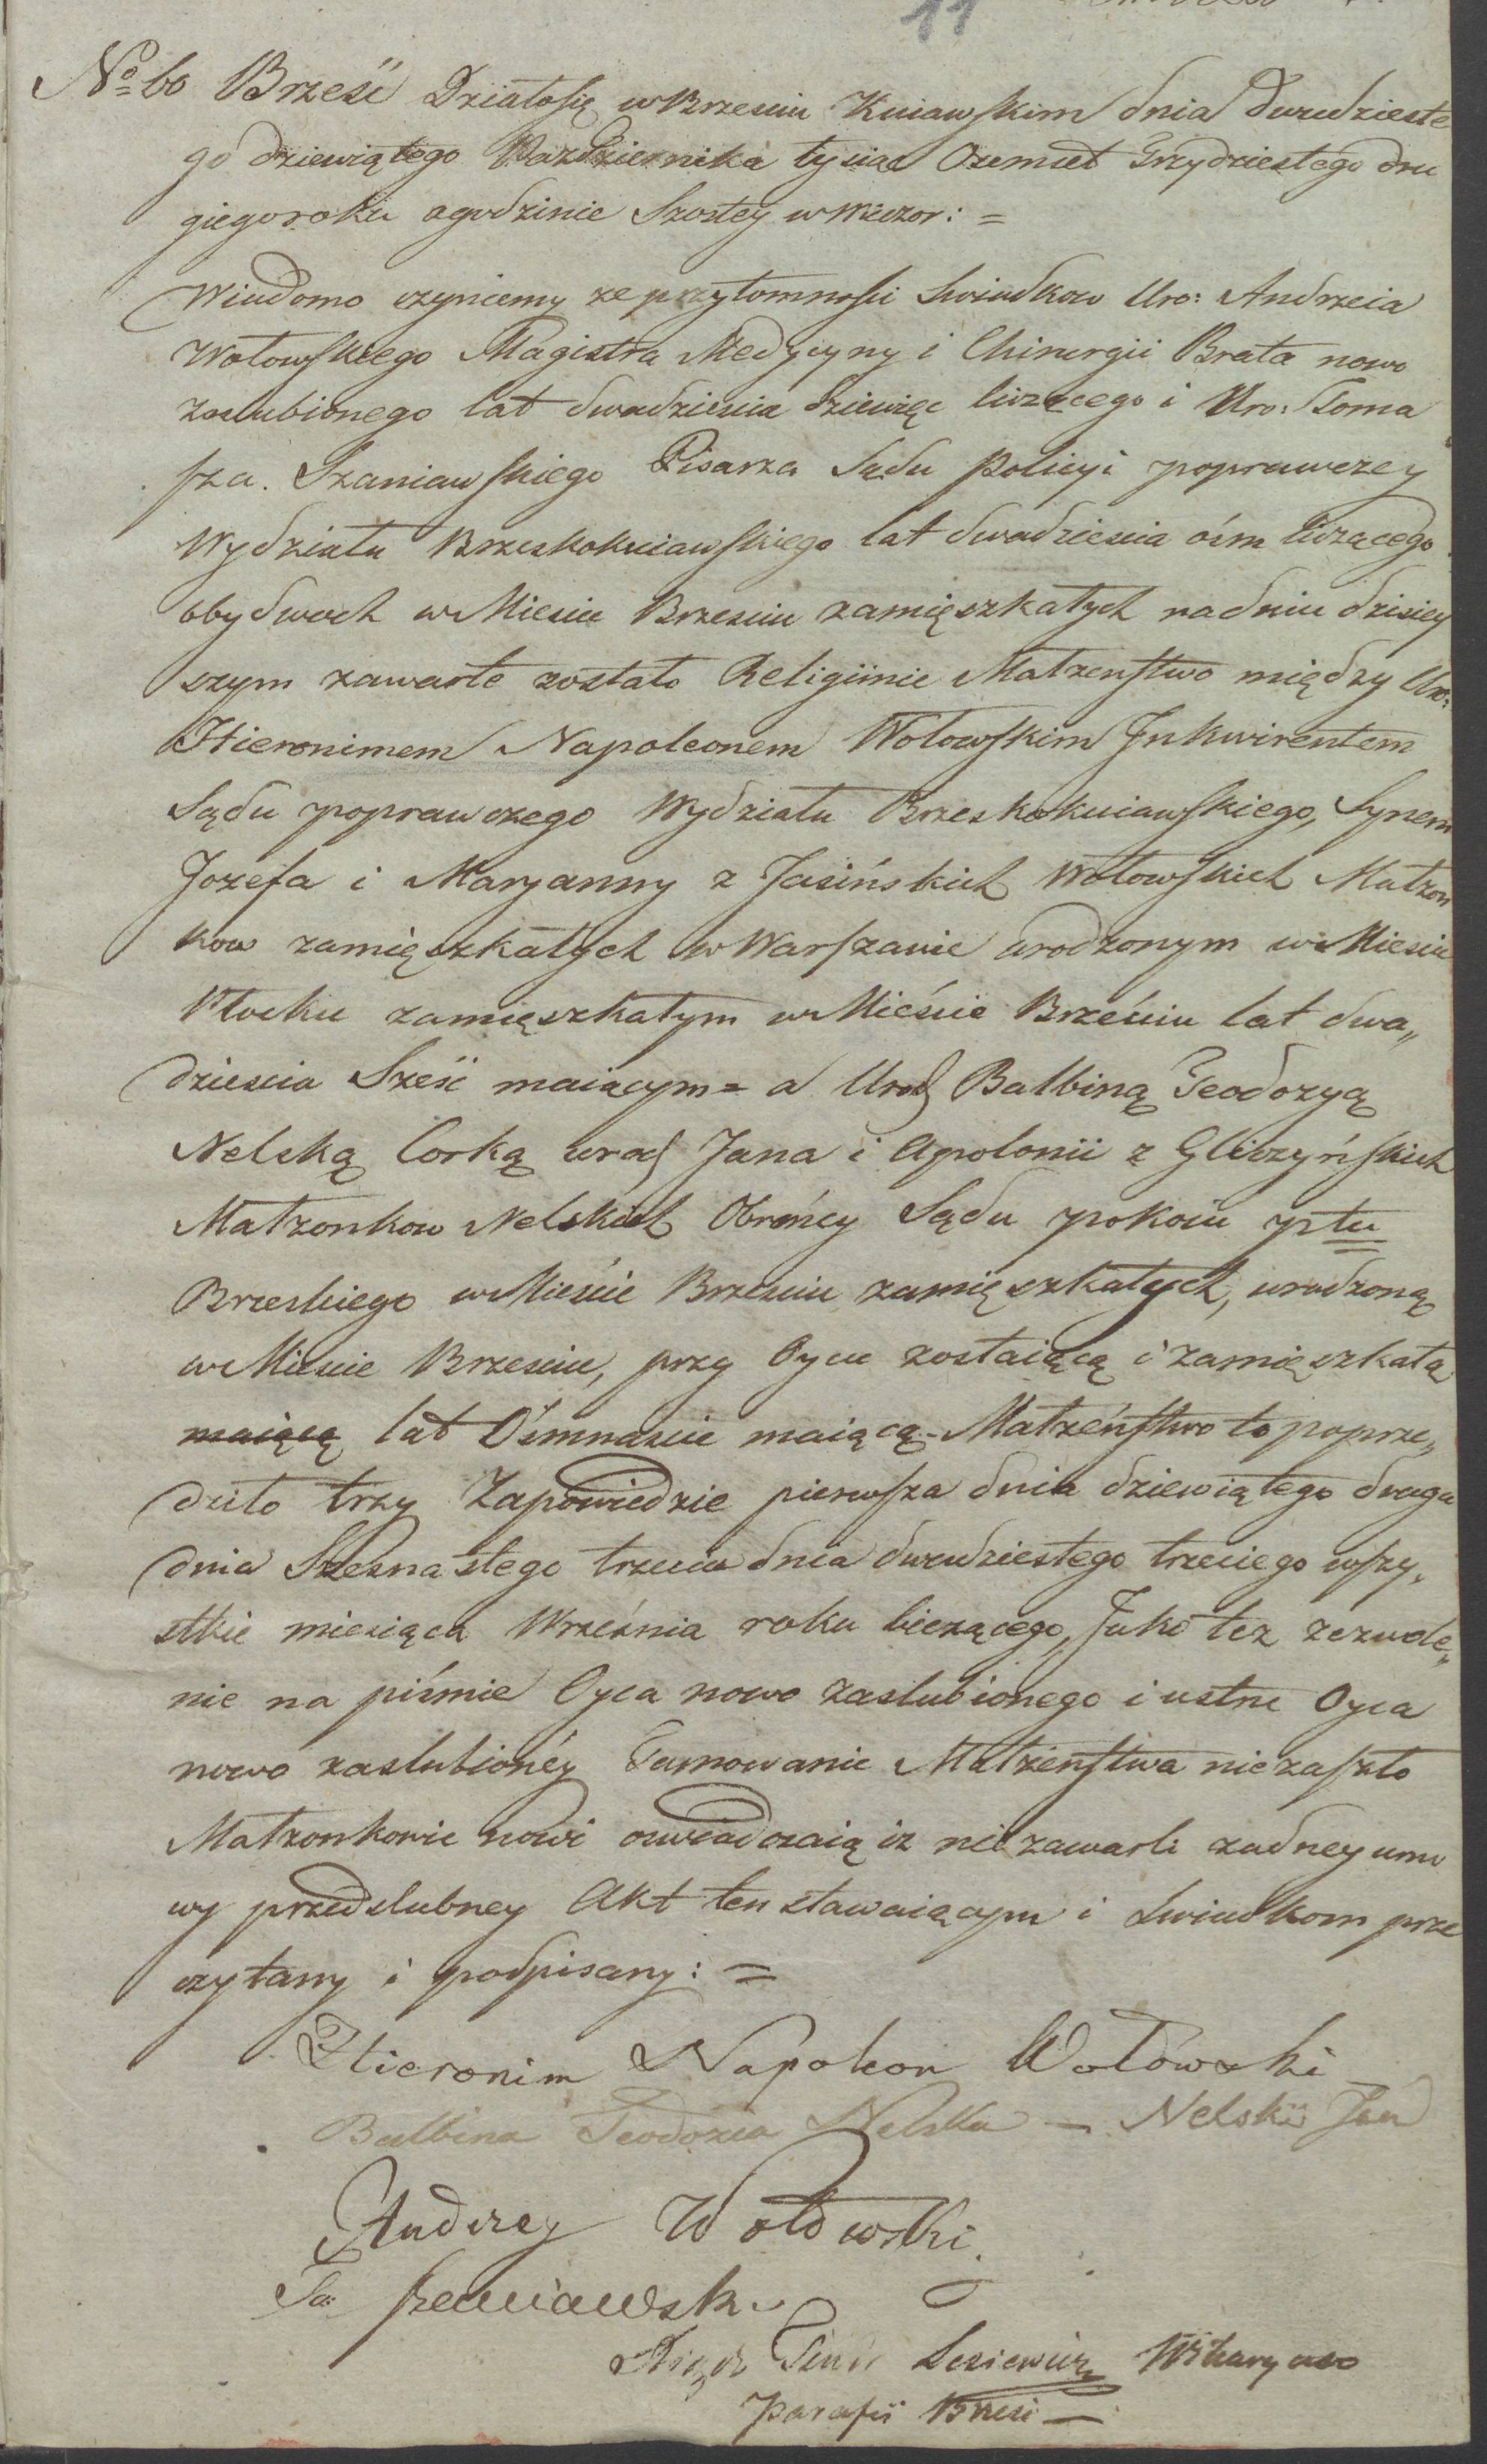 11
No 60 Brześć Działo się w Brzesciu Kuiawskim dnia dwudzieste
go dziewiątego Pazdziernika tysiąc Osmset Trzydziestego dru
giego roku o godzinie Szostey w Wieczor: =
Wiadomo czyniemy ze przytomnosci Swiadkow Uro: Andrzeia
Wołowskiego Magistra Medycyny i Chirurgii Brata nowo
zaslubionego lat dwadziescia dziewięc liczącego i Uro: Toma
sza. Szaniawskiego Pisarza Sądu Policyi poprawczey
Wydziału Brzeskokuiawskiego lat dwadziescia óśm liczącego
obydwoch w Miescie Brzesciu zamięszkałych na dniu dzisiey
szym zawarte zostało Religiinie Małzenstwo między Uro:
Hieronimem Napoleonem Wołowskim Inkwirentem
Sądu poprawczego Wydziału Brzeskokuiawskiego, Synem
Jozefa i Maryanny z Jasińskich Wołowskich Małzon
kow zamięszkałych w Warszawie urodzonym w Miescie
Płocku zamięszkałym w Mieście Brześciu lat dwa„
dziescia Sześć maiącym = a Urod Balbiną Teodozyą
Nelską Corką urod Jana i Apolonii z Gliszczyńskich
Małzonkow Nelskich Obrońcy Sądu pokoiu ptu
Brzeskiego w Mieście Brzesciu zamięszkałych, urodzoną
w Miescie Brzesciu, przy Oycu zostaiącą i zamięszkałą
maiącą lat Ośmnascie maiącą - Małzeństwo to poprze„
dziło trzy Zapowiedzie pierwsza dnia dziewiątego druga
dnia Szesnastego trzecia dnia dwudziestego trzeciego wszy„
stkie miesiąca Września roku bieżącego, Jako tez zezwole„
nie na piśmie Oyca nowo zaslubionego i ustne Oyca
nowo zaslubionéy Tamowanie Małzenstwa nie zaszło
Małzonkowie nowi oswiadczaią iz nie zawarli zadney umo
wy przedslubney Akt ten stawaiącym i Swiadkom prze
czytany i podpisany: =
Hieronim Napoleon Wołowski
Balbina Teodozia Nelska — Nelski Jan
Andrzey Wołowski
To: Szaniawski
Xiądz Lesiewicz Wikaryusz
Parafii Brześć —